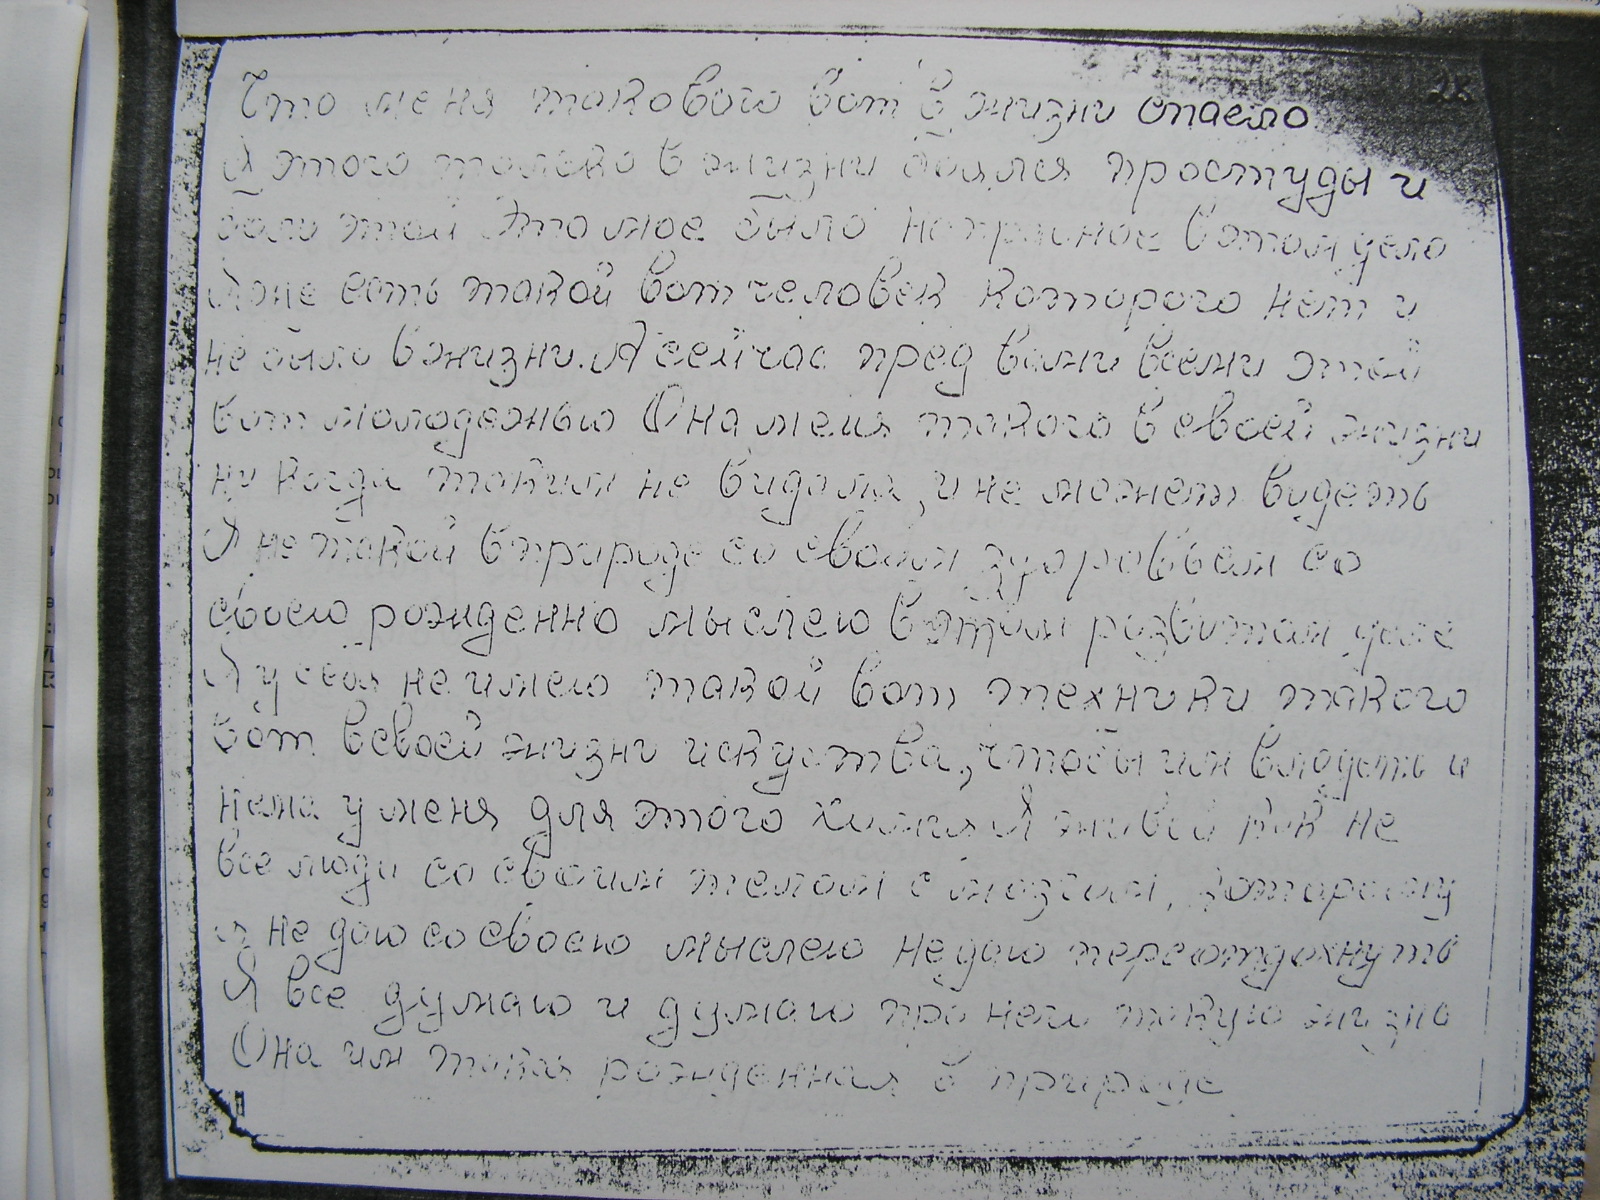 22
Что меня такового вот в жизни спасло
Я этого только в жизни боялся простуды и
боли этой Это мое было напрасное в этом дело
Я же есть такой вот человек которого нет и
не было в жизни. А сейчас пред вами всеми этой
вот молодежью Она меня такого в своей жизни
никогда таким не видала, и не может видеть
Я не такой в природе со своим здоровьем со
своею рожденно мыслею в этим развитом уме
Я у себя не имею такой вот техники такого
вот в своей жизни искуства, чтобы им владеть и
нема у меня для этого химия Я живой как не
все люди со своим телом с мозгом, которому
я не даю со своею мыслею не даю передохнуть
Я все думаю и думаю про нею такую жизнь
Она им такая рожденная в природе